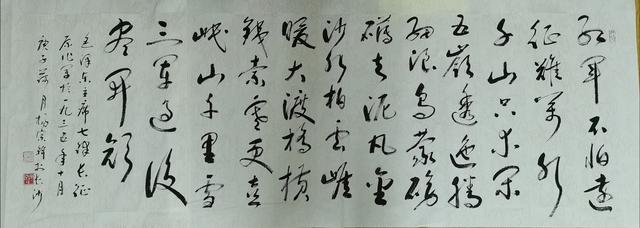 红軍不怕遠
征難萬水
千山只等闲
五嶺逶迤腾
细浪烏蒙磅
礴走泥丸金
沙水拍云崖
暖大渡橋横
鐵索寒更喜
岷山千里雪
三軍过後
尽开颜
毛泽东主席七律长征
原作写於一九三五年十月
庚子荷月楊宗於长沙